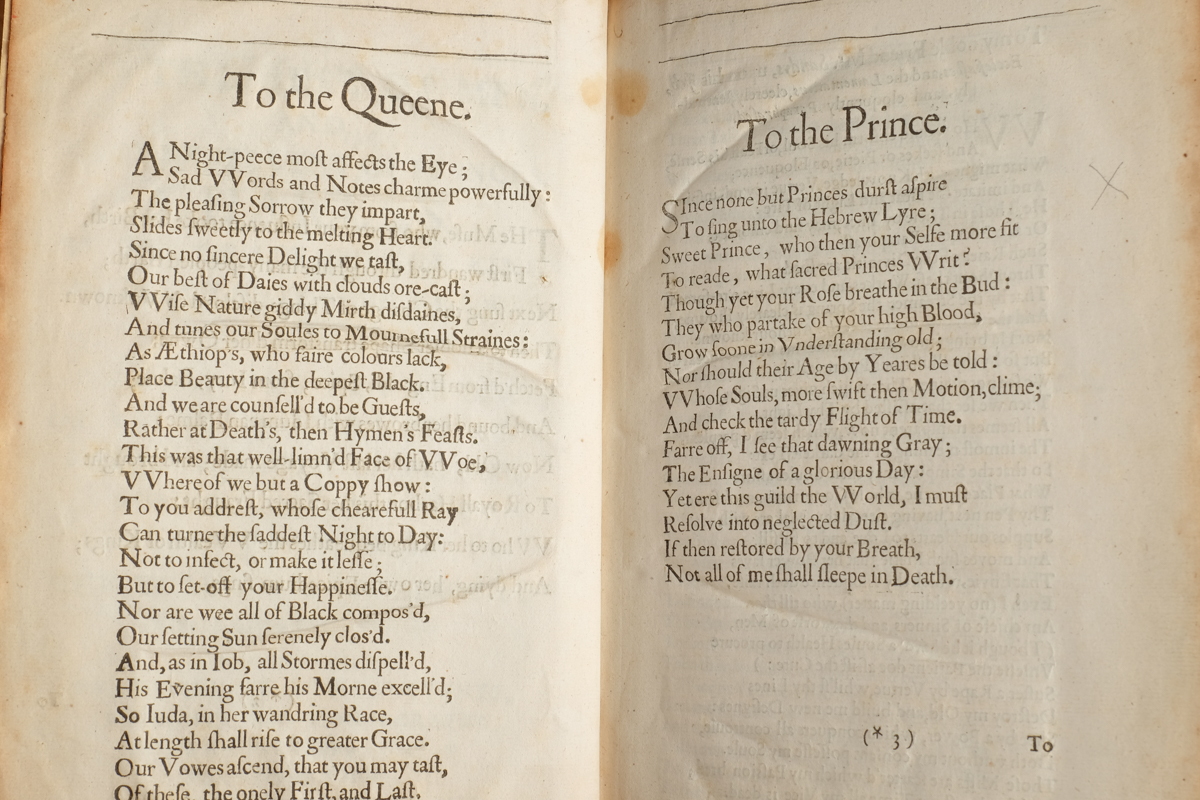 To the Queene.
A Night-peece moſt affects the Eye;
Sad VVords and Notes charme powerfully:
The pleaſing Sorrow they impart,
Slides ſweetly to the melting Heart.
Since no ſincere Delight we taſt,
Our beſt of Daies with clouds ore-caſt;
VViſe Nature giddy Mirth diſdaines,
And tunes our Soules to Mournefull Straines:
As Æthiop's, who faire colours lack,
Place Beauty in the deepeſt Black.
And we are counſell'd to be Gueſts,
Rather at Death's, then Hymen's Feaſts.
This was that well-limn'd Face of VVoe,
VVhereof we but a Coppy ſhow:
To you addreſt, whoſe chearefull Ray
Can turne the ſaddeſt Night to Day:
Not to infect, or make it leſſe;
But to ſet-off your Happineſſe.
Nor are wee all of Black compos'd,
Our ſetting Sun ſerenely clos'd.
And, as in Iob, all Stormes diſpell'd,
His Evening farre his Morne excell'd;
So Iuda, in her wandring Race,
At length ſhall riſe to greater Grace.
Our Vowes aſcend, that you may taſt,
Of theſe, the onely Firſt, and Laſt.
To the Prince.
SInce none but Princes durſt aſpire
To ſing unto the Hebrew Lyre;
Sweet Prince, who then your Selfe more fit
To reade, what ſacred Princes VVrit?
Though yet your Roſe breathe in the Bud:
They who partake of your high Blood,
Grow ſoone in Vnderſtanding old;
Nor ſhould their Age by Yeares be told:
VVhoſe Souls, more ſwift then Motion, clime;
And check the tardy Flight of Time.
Farre off, I ſee that dawning Gray;
The Enſigne of a glorious Day:
Yet ere this guild the VVorld, I muſt
Reſolve into neglected Duſt.
If then reſtored by your Breath,
Not all of me ſhall ſleepe in Death.
(* 3)
To